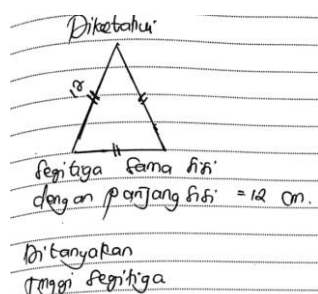 Diketahui
12
Segitiga Sama Sisi
dengan panjang sisi = 12 cm.
Ditanyakan
tinggi Segitiga